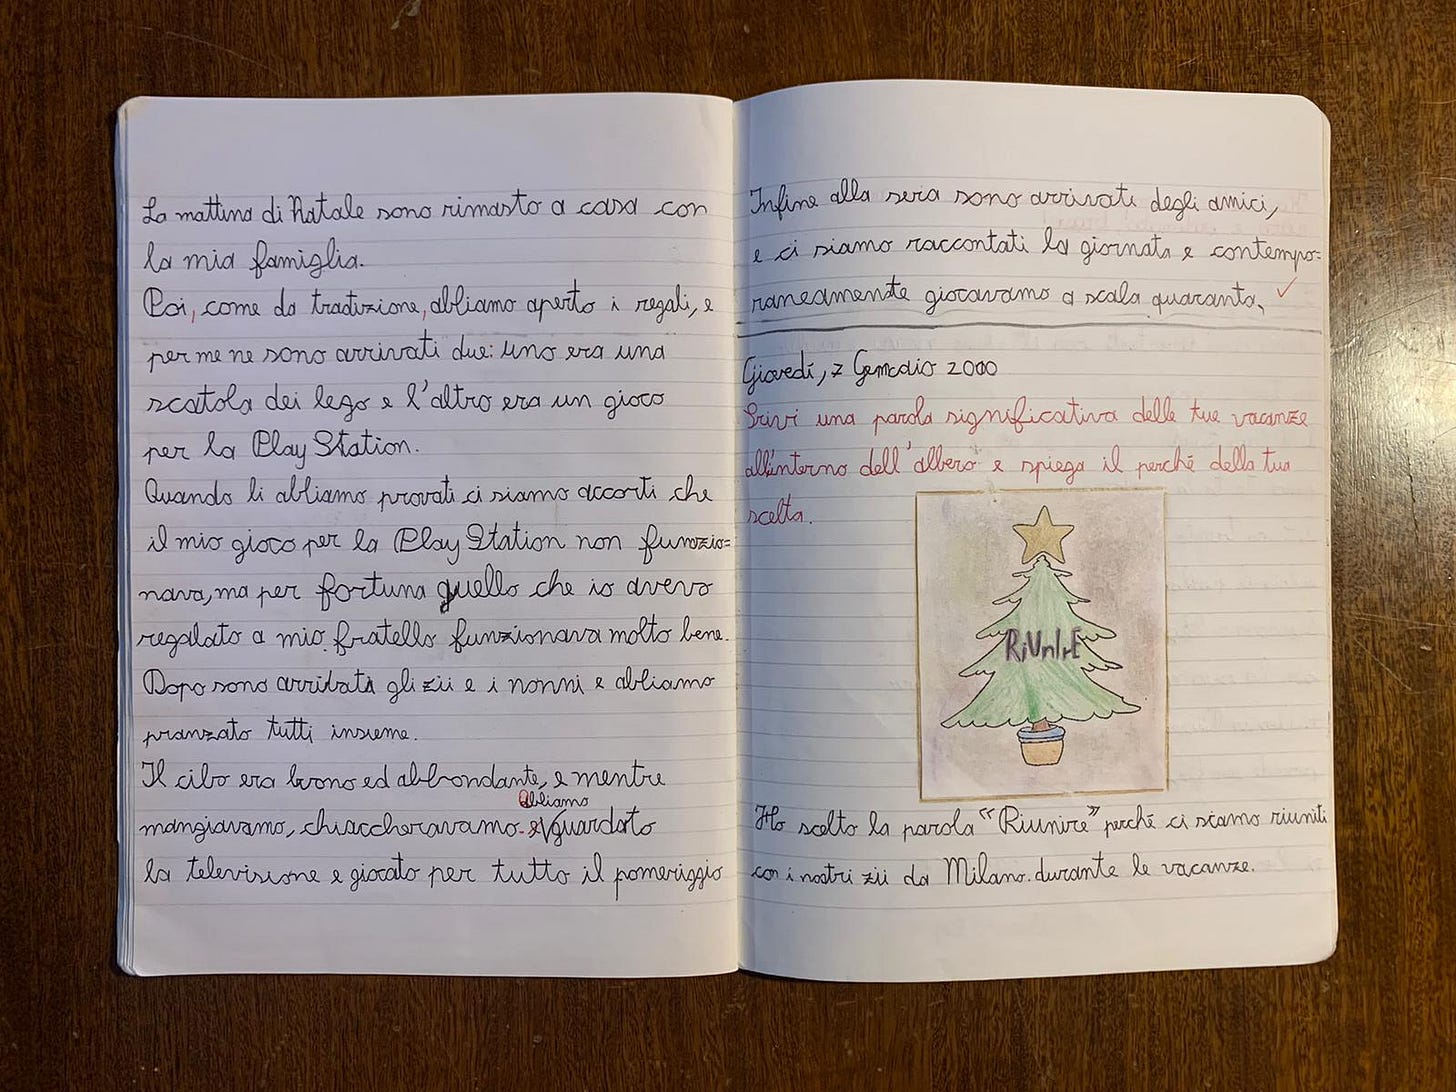 La mattina di Natale sono rimasto a casa con
la mia famiglia.
Poi, come da tradizione, abbiamo aperto i regali, e
per me ne sono arrivati due: uno era una
scatola dei lego e l'altro era un gioco
per la Play Station.
Quando li abbiamo provati ci siamo accorti che
il mio gioco per la Play Station non funzio=
nava, ma per fortuna quello che io avevo
regalato a mio fratello funzionava molto bene.
Dopo sono arrivati gli zii e i nonni e abbiamo
pranzato tutti insieme.
Il cibo era buono ed abbondante, e mentre
abbiamo
mangiavamo, chiaccheravamo. e guardato
la televisione e giocato per tutto il pomeriggio
Infine alla sera sono arrivati degli amici,
e ci siamo raccontati la giornata e contempo=
raneamente giocavamo a scala quaranta.
Giovedí, 7 Gennaio 2000
Srivi una parola significativa delle tue vacanze
all'interno dell'albero e spiega il perché della tua
scelta.
RiUnIrE
Ho scelto la parola "Riunire" perché ci siamo riuniti
con i nostri zii da Milano. durante le vacanze.